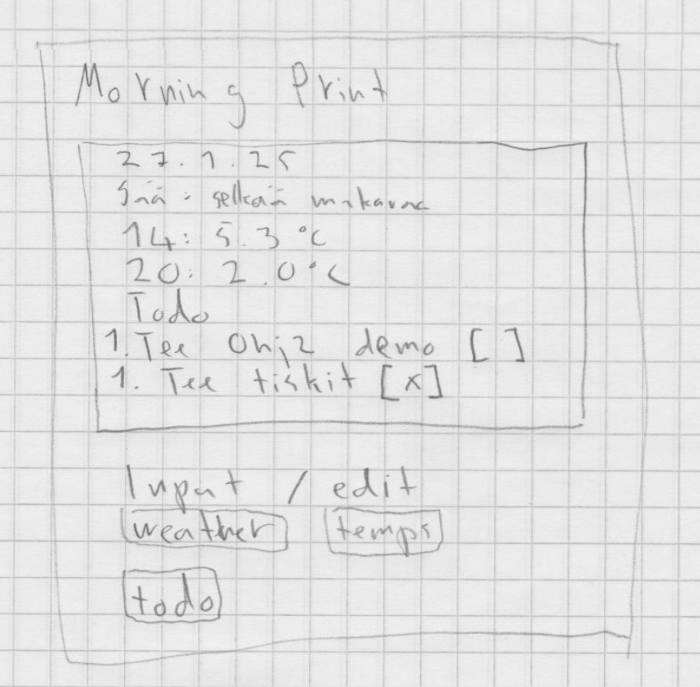 Morning Print
27.1.25
Sää: selkeän mukavaa
14: 5.3 °C
20: 2.0 °C
Todo
1. Tee Ohj2 demo [ ]
1. Tee tiskit [x]
Input / edit
weather temps
todo